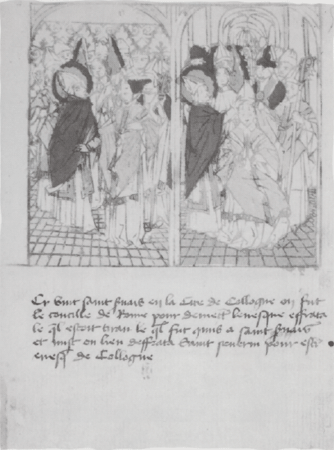 Cy vint saint servais en la Cite de Collogne ou fut
le concille de Rome pour demett' levesque effrata
le ql estoit tiran le ql fut quis a saint servais
et mist on lieu deffrata Saint severin pour est'
evesq de Collogne